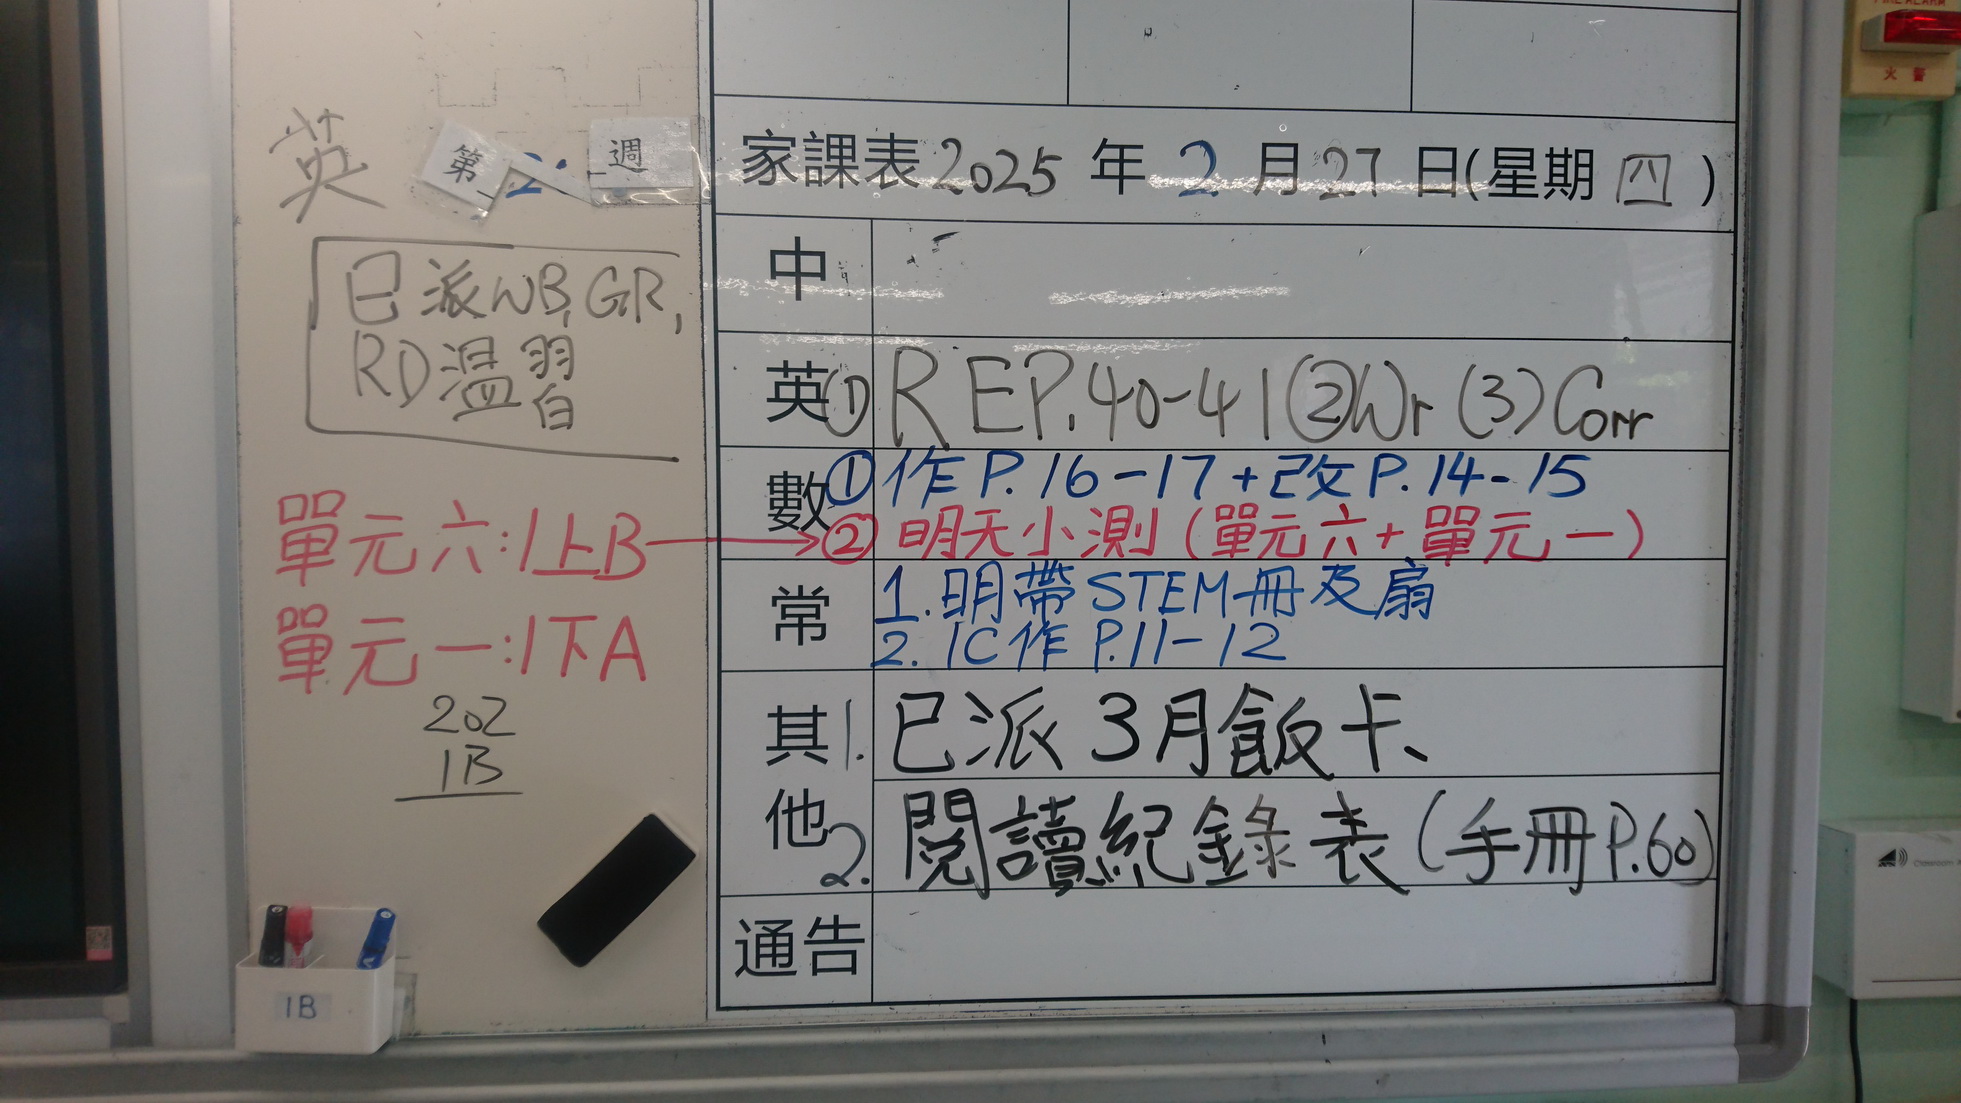 英
第 2 週
已派WB, GR,
RD溫習
單元六:1上B
單元一:1下A
202
1B
1B
家課表2025年2月27日(星期四)
中
英 ① REP.40-41 ② Wr (3) Corr
數 ① 作P.16-17+改P.14-15
② 明天小測(單元六+單元一)
常 1. 明帶STEM冊及扇
2. IC作P.11-12
其他 1. 已派3月飯卡
2. 閱讀紀錄表(手冊P.60)
通告
FIRE ALARM
火警